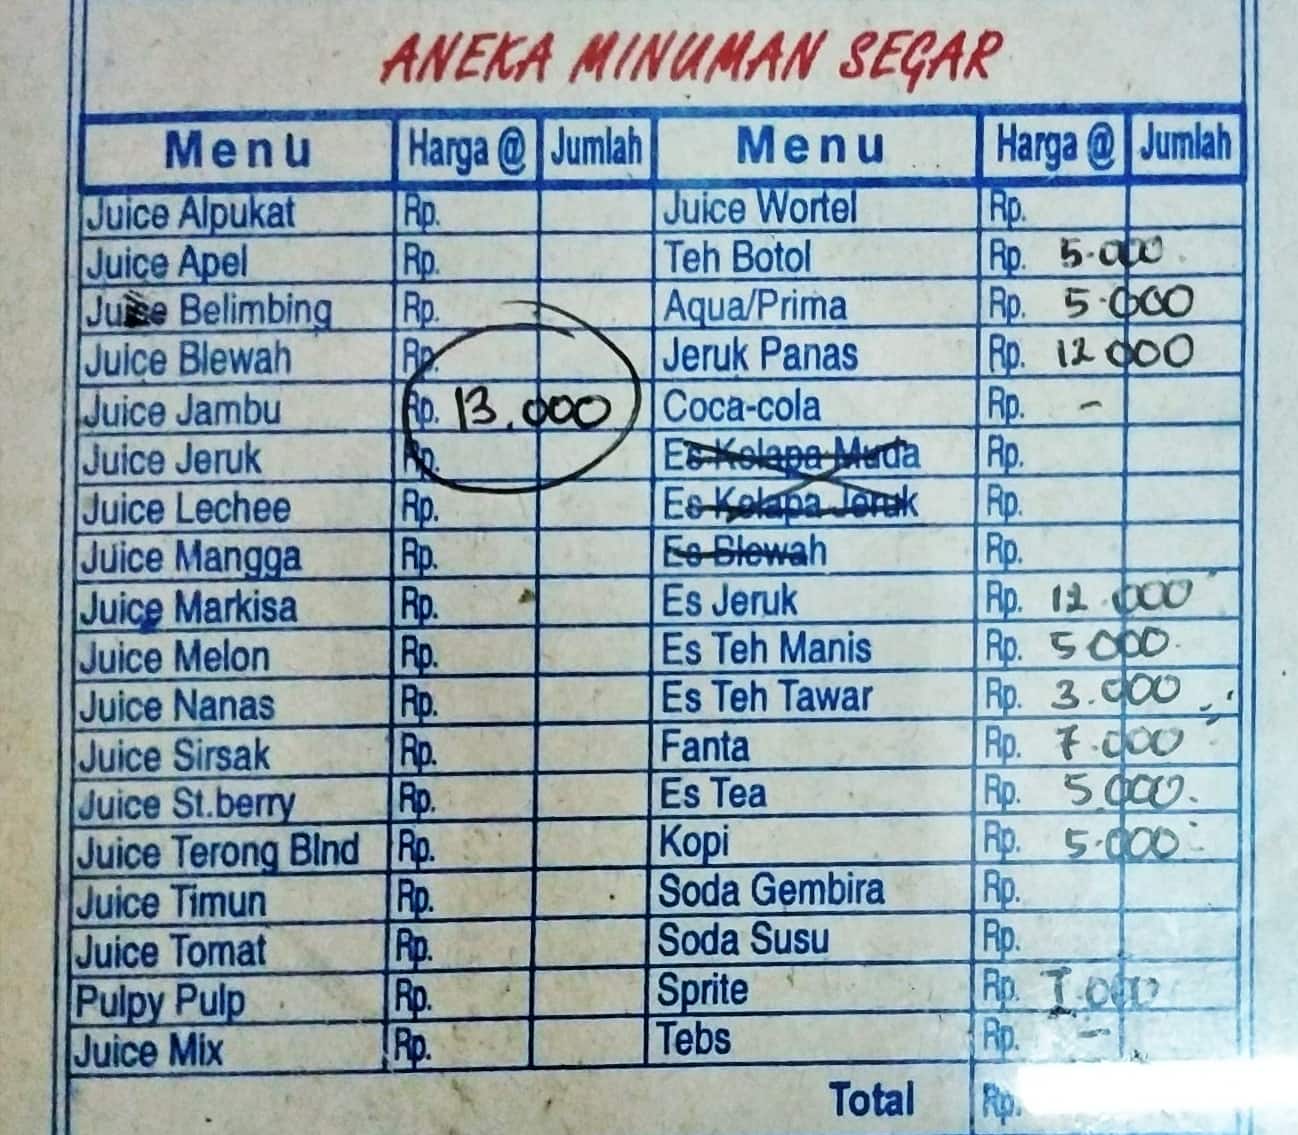 ANEKA MINUMAN SEGAR
Menu Harga @ Jumlah Menu Harga @ Jumlah
Juice Alpukat Rp. Juice Wortel Rp.
Juice Apel Rp. Teh Botol Rp. 5.000
Juice Belimbing Rp. Aqua/Prima Rp. 5.000
Juice Blewah Rp. Jeruk Panas Rp. 12.000
Juice Jambu Rp. 13.000 Coca-cola Rp. -
Juice Jeruk Rp. Es Kelapa Muda Rp.
Juice Lechee Rp. Es Kelapa Jeruk Rp.
Juice Mangga Rp. Es Blewah Rp.
Juice Markisa Rp. Es Jeruk Rp. 12.000
Juice Melon Rp. Es Teh Manis Rp. 5000
Juice Nanas Rp. Es Teh Tawar Rp. 3.000
Juice Sirsak Rp. Fanta Rp. 7.000
Juice St.berry Rp. Es Tea Rp. 5.000
Juice Terong Blnd Rp. Kopi Rp. 5.000
Juice Timun Rp. Soda Gembira Rp.
Juice Tomat Rp. Soda Susu Rp.
Pulpy Pulp Rp. Sprite Rp. 7.000
Juice Mix Rp. Tebs Rp. -
Total Rp.